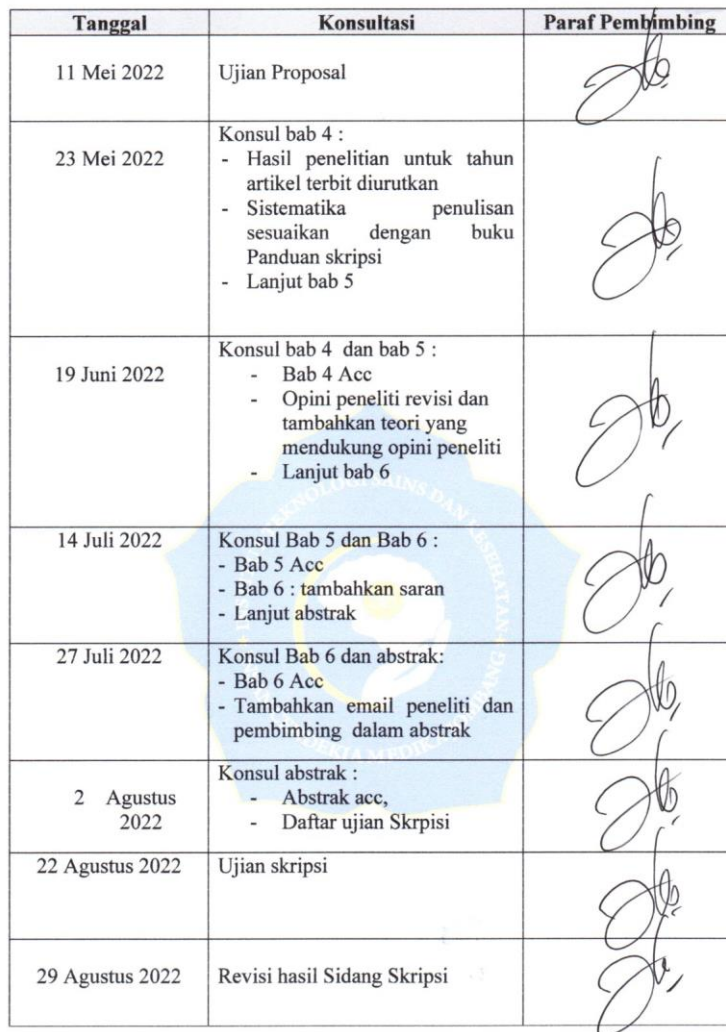 Tanggal Konsultasi Paraf Pembimbing
11 Mei 2022 Ujian Proposal
Konsul bab 4 :
23 Mei 2022 - Hasil penelitian untuk tahun
artikel terbit diurutkan
- Sistematika penulisan
sesuaikan dengan buku
Panduan skripsi
- Lanjut bab 5
Konsul bab 4 dan bab 5 :
19 Juni 2022 - Bab 4 Acc
- Opini peneliti revisi dan
tambahkan teori yang
mendukung opini peneliti
- Lanjut bab 6
14 Juli 2022 Konsul Bab 5 dan Bab 6 :
- Bab 5 Acc
- Bab 6 : tambahkan saran
- Lanjut abstrak
27 Juli 2022 Konsul Bab 6 dan abstrak:
- Bab 6 Acc
- Tambahkan email peneliti dan
pembimbing dalam abstrak
Konsul abstrak :
2 Agustus - Abstrak acc,
2022 - Daftar ujian Skrpisi
22 Agustus 2022 Ujian skripsi
29 Agustus 2022 Revisi hasil Sidang Skripsi
TEKNOLOGI SAINS DAN KESEHATAN
MEDIKA